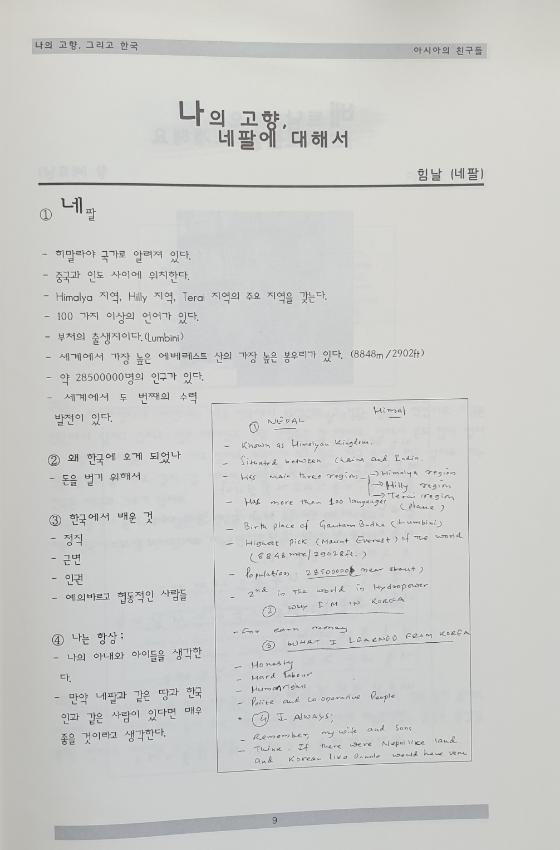 나의 고향, 그리고 한국
아시아의 친구들
나의 고향,
네팔에 대해서
힘날 (네팔)
① 네팔
- 히말라야 국가로 알려져 있다.
- 중국과 인도 사이에 위치한다.
- Himalya 지역, Hilly 지역, Terai 지역의 주요 지역을 갖는다.
- 100 가지 이상의 언어가 있다.
- 부처의 출생지이다.(Lumbini)
- 세계에서 가장 높은 에베레스트 산의 가장 높은 봉우리가 있다. (8848m/2902ft)
- 약 28500000명의 인구가 있다.
- 세계에서 두 번째의 수력
발전이 있다.
② 왜 한국에 오게 되었나
- 돈을 벌기 위해서
③ 한국에서 배운 것
- 정직
- 근면
- 인권
- 예의바르고 협동적인 사람들
④ 나는 항상;
- 나의 아내와 아이들을 생각한
다.
- 만약 네팔과 같은 땅과 한국
인과 같은 사람이 있다면 매우
좋을 것이라고 생각한다.
Himal
① NEPAL
- Known as Himalyan Kingdom.
- Situated between China and India.
- Has main three region
→ Himalya region
→ Hilly region
→ Terai region
(plane)
- Has more than 100 languages
- Birth place of Gautam Budha (Lumbini)
- Highest Pick (Mount Everest) of the world
(8848 mtr/29028ft.)
- Population: 28500000 (near about)
- 2nd in the world in Hydropower
② WHY I'M IN KOREA
- For earn money
③ WHAT I LEARNED FROM KOREA
- Honesty
- Hard labour
- Human rights
- Polite and Co-operative People
④ I ALWAYS;
- Remember, my wife and Sons
- Think. If there were Nepal like land
and Korean like would have
9